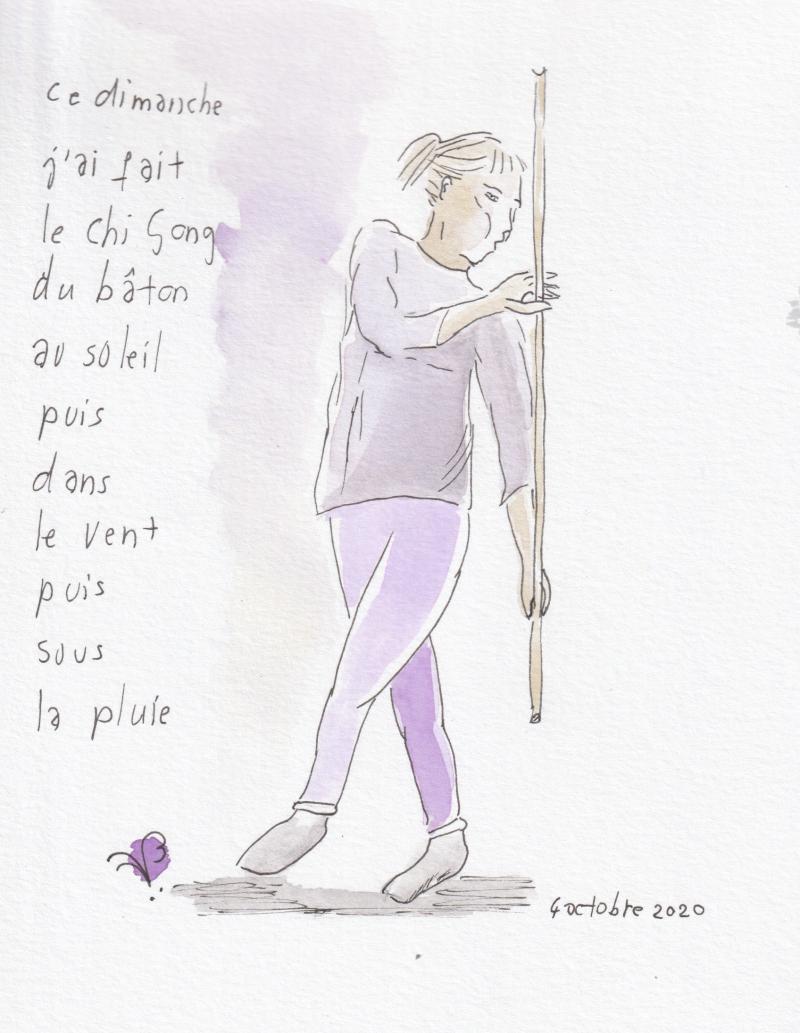 ce dimanche
j'ai fait
le Chi Gong
du bâton
au soleil
puis
dans
le vent
puis
sous
la pluie
4 octobre 2020